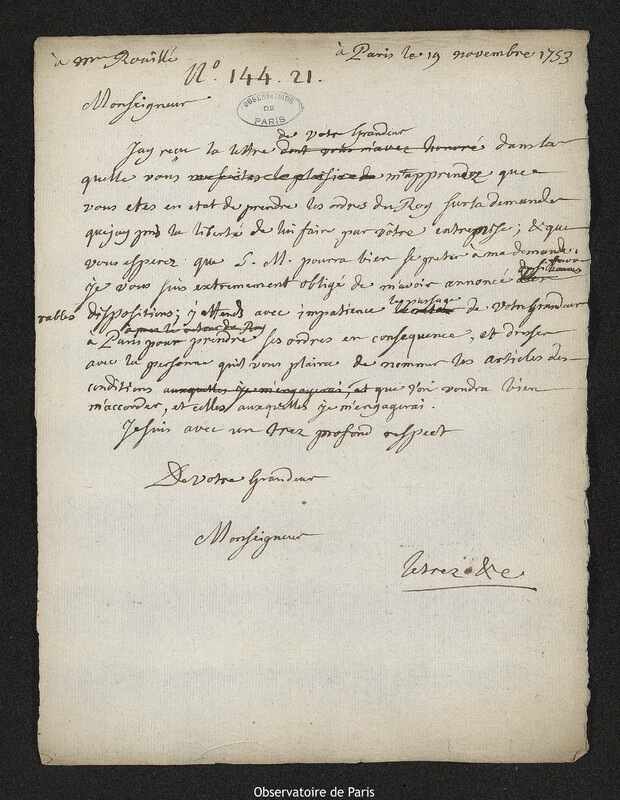 à Mr Rouillé
à Paris le 19 novembre 1753
N.° 144. 21.
OBSERVATOIRE DE PARIS
Monseigneur
de votre Grandeur
J'ay receu la lettre dont vous m'avez honoré dans la
quelle vous me faites le plaisir de m'apprendre que
vous etes en etat de prendre les ordres du Roy sur la demande
que j'ay pris la liberté de lui faire par votre entremise; & que
vous esperez que S. M. pourra bien se preter a ma demande.
Je vous suis extremement obligé de m'avoir annoncé des favo
rables dispositions; j'attends avec impatience le passage de votre Grandeur
après le retour du Roy
a Paris pour prendre ses ordres en consequence, et dresser
avec la personne qu'il vous plaira de nommer les articles des
conditions auxquelles je m'engagerai, et que l'on voudra bien
m'accorder, et celles auxquelles je m'engagerai.
Je suis avec un trez profond respect
De votre Grandeur
Monseigneur
le trez &c
Observatoire de Paris